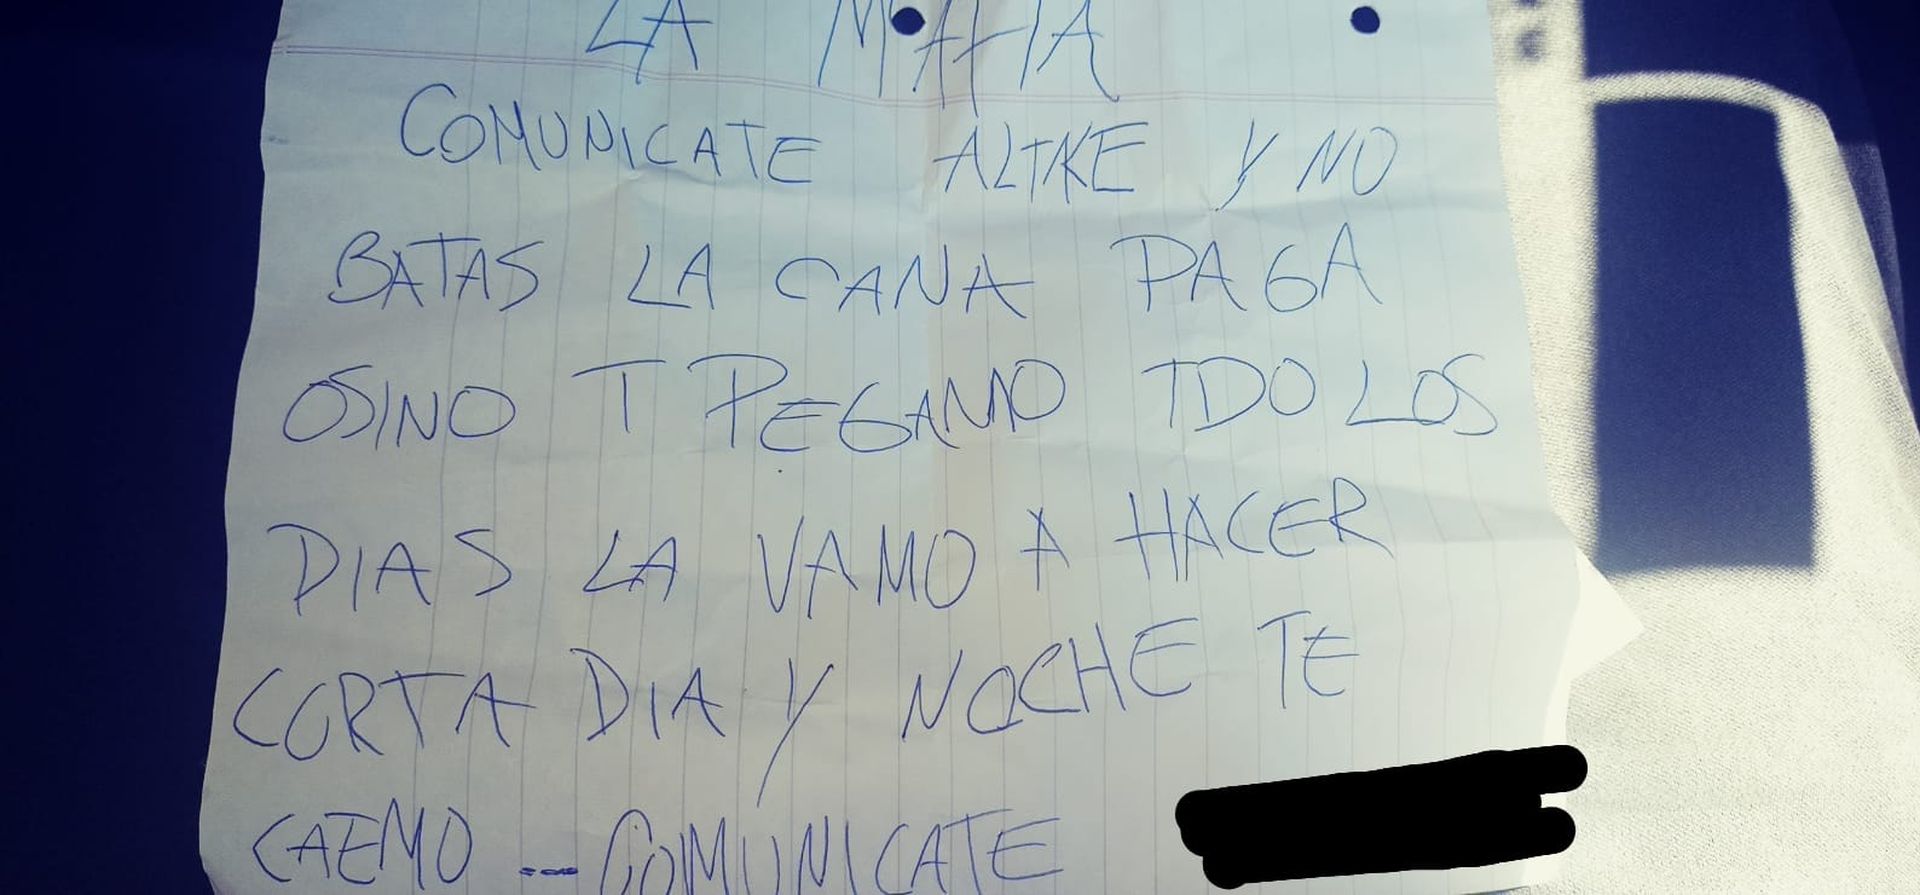 LA MAFIA
COMUNICATE ALTKE Y NO
BATAS LA CANA PAGA
OSINO T PEGAMO TDO LOS
DIAS LA VAMO A HACER
CORTA DIA Y NOCHE TE
CAEMO -- COMUNICATE